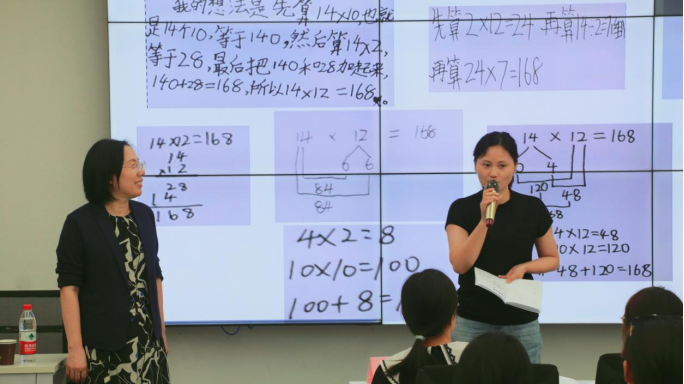 我的想法是先算14×10,也就
是14个10,等于140,然后算14×2,
等于28,最后把140和28加起来,
140+28=168,所以14×12=168。
先算2×12=24 再算14÷2=7
再算24×7=168
14×12=168
14
×12
28
14
168
14 × 12 = 168
6 6
84
84
14 × 12 = 168
4
120 48
68
4×2=8
10×10=100
100+8=1
4×12=48
0×12=120
48+120=168